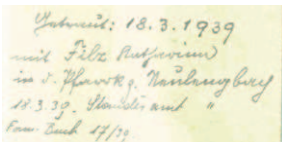 Getraut: 18.3.1939
mit Filz Katharina
in d. Pfarrk. Neulengbach
18.3.39. Standesamt "
Fam. Buch 17/39